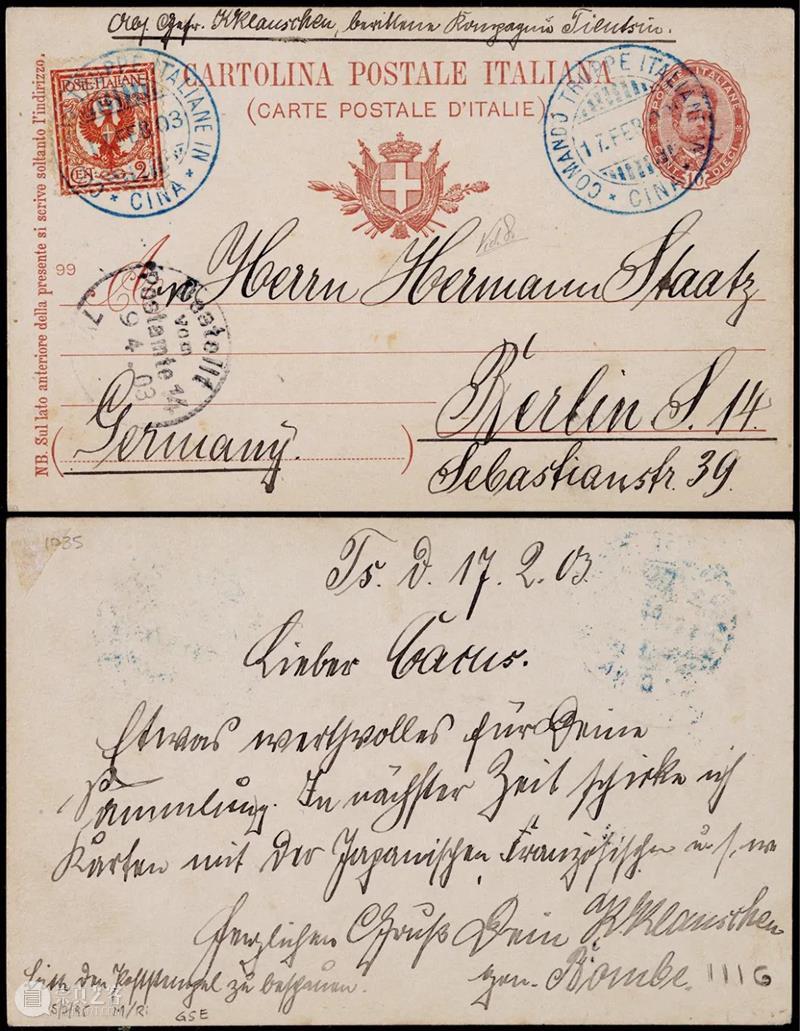 Abs. Gefr. KKlauschen, berittene Kompagnie Tientsin.
CARTOLINA POSTALE ITALIANA
(CARTE POSTALE D'ITALIE)
POSTE ITALIANE
CEN. 2
COMANDO TRUPPE ITALIANE IN CINA
FEB 03
COMANDO TRUPPE ITALIANE IN CINA
17. FEB
NB. Sul lato anteriore della presente si scrive soltanto l'indirizzo.
99
An Herrn Hermann Staatz
Bestellt
vom
Postamte 14
9 4 03
Berlin S. 14.
Germany.
Sebastianstr. 39.
1035
Ts. d. 17. 2. 03.
Lieber Cacus.
Etwas werthvolles für Deine
Sammlung. In nächster Zeit schicke ich
Karten mit der Japanischen, Französischen u. s. w
Herzlichen Gruß Dein KKlauschen
gen. Bombe.
1116
bitte den Poststempel zu beschauen.
M/Ri
GSE